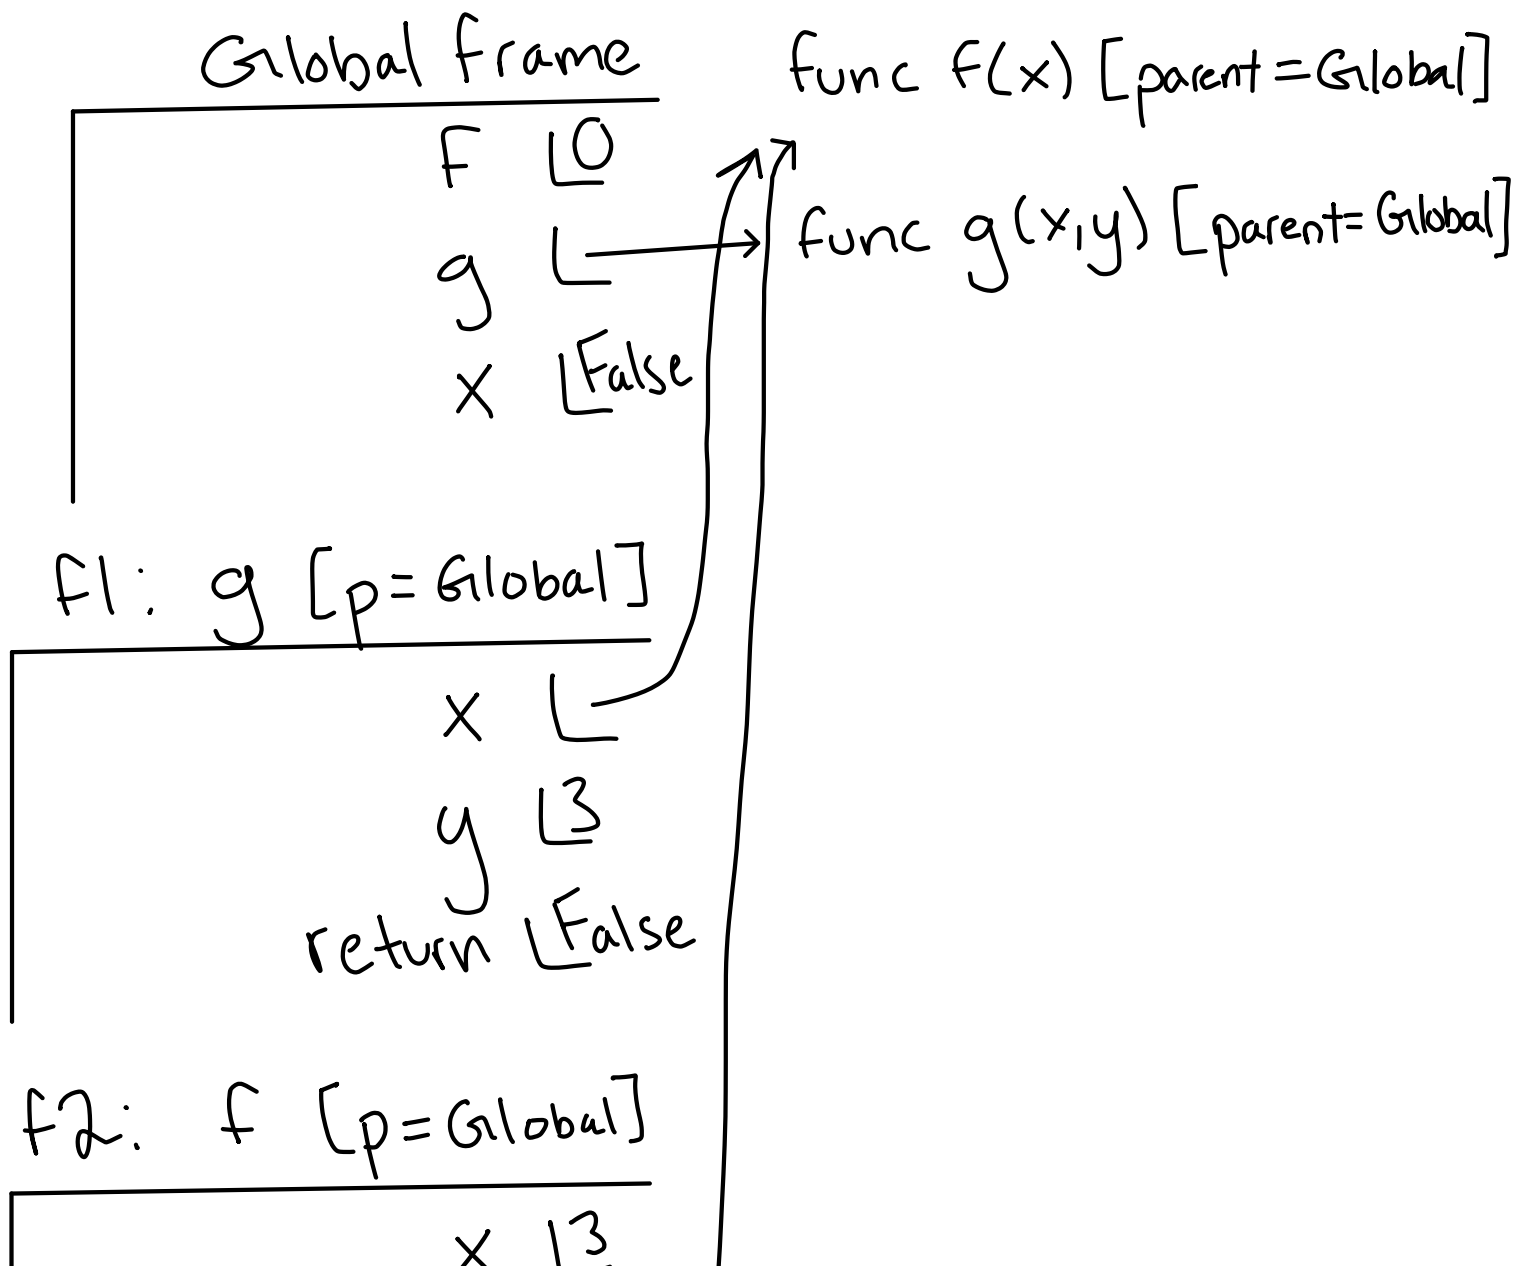 Global frame
func f(x) [parent=Global]
f 0
g
func g(x,y) [parent=Global]
x False
f1: g [p=Global]
x
y 3
return False
f2: f [p=Global]
x 3